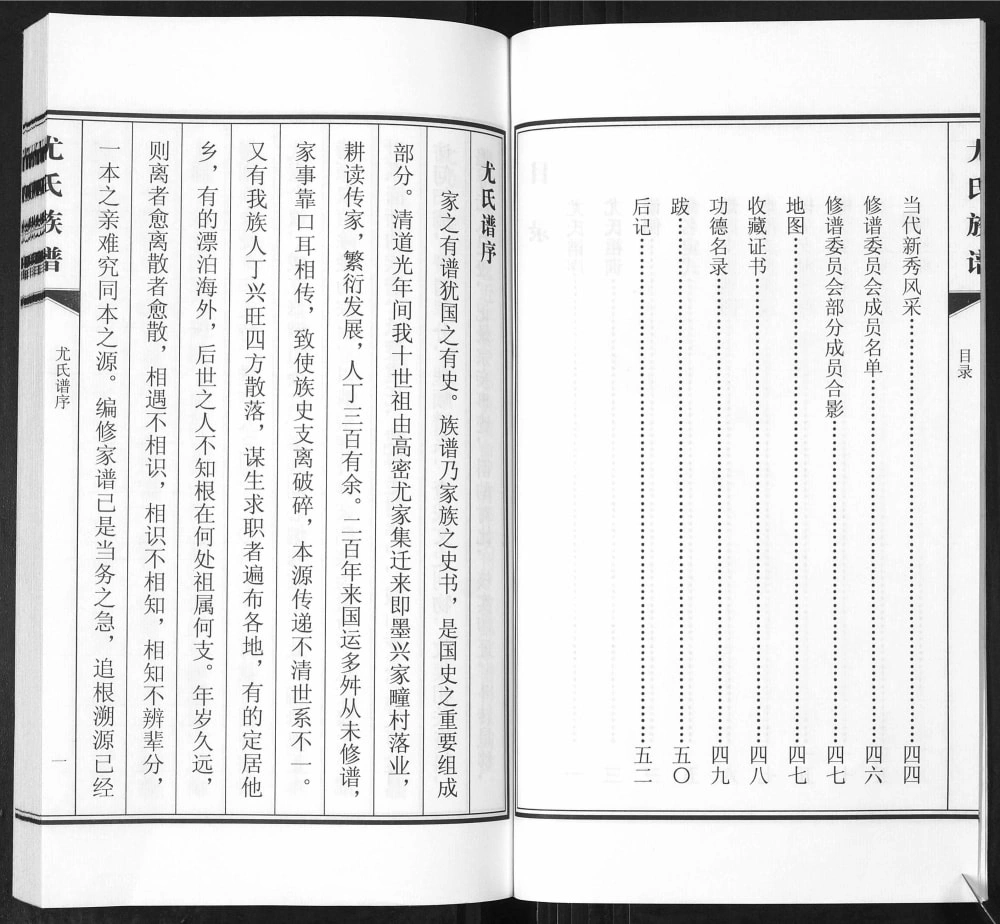 尤氏族谱
目录
当代新秀风采……四四
修谱委员会成员名单……四六
修谱委员会部分成员合影……四七
地图……四七
收藏证书……四八
功德名录……四九
跋……五〇
后记……五二
尤氏谱序
家之有谱犹国之有史。族谱乃家族之史书，是国史之重要组成
部分。清道光年间我十世祖由高密尤家集迁来即墨兴家疃村落业，
耕读传家，繁衍发展，人丁三百有余。二百年来国运多舛从未修谱，
家事靠口耳相传，致使族史支离破碎，本源传递不清世系不一。
又有我族人丁兴旺四方散落，谋生求职者遍布各地，有的定居他
乡，有的漂泊海外，后世之人不知根在何处祖属何支。年岁久远，
则离者愈离散者愈散，相遇不相识，相识不相知，相知不辨辈分，
一本之亲难究同本之源。编修家谱已是当务之急，追根溯源已经
尤氏族谱
尤氏谱序
一